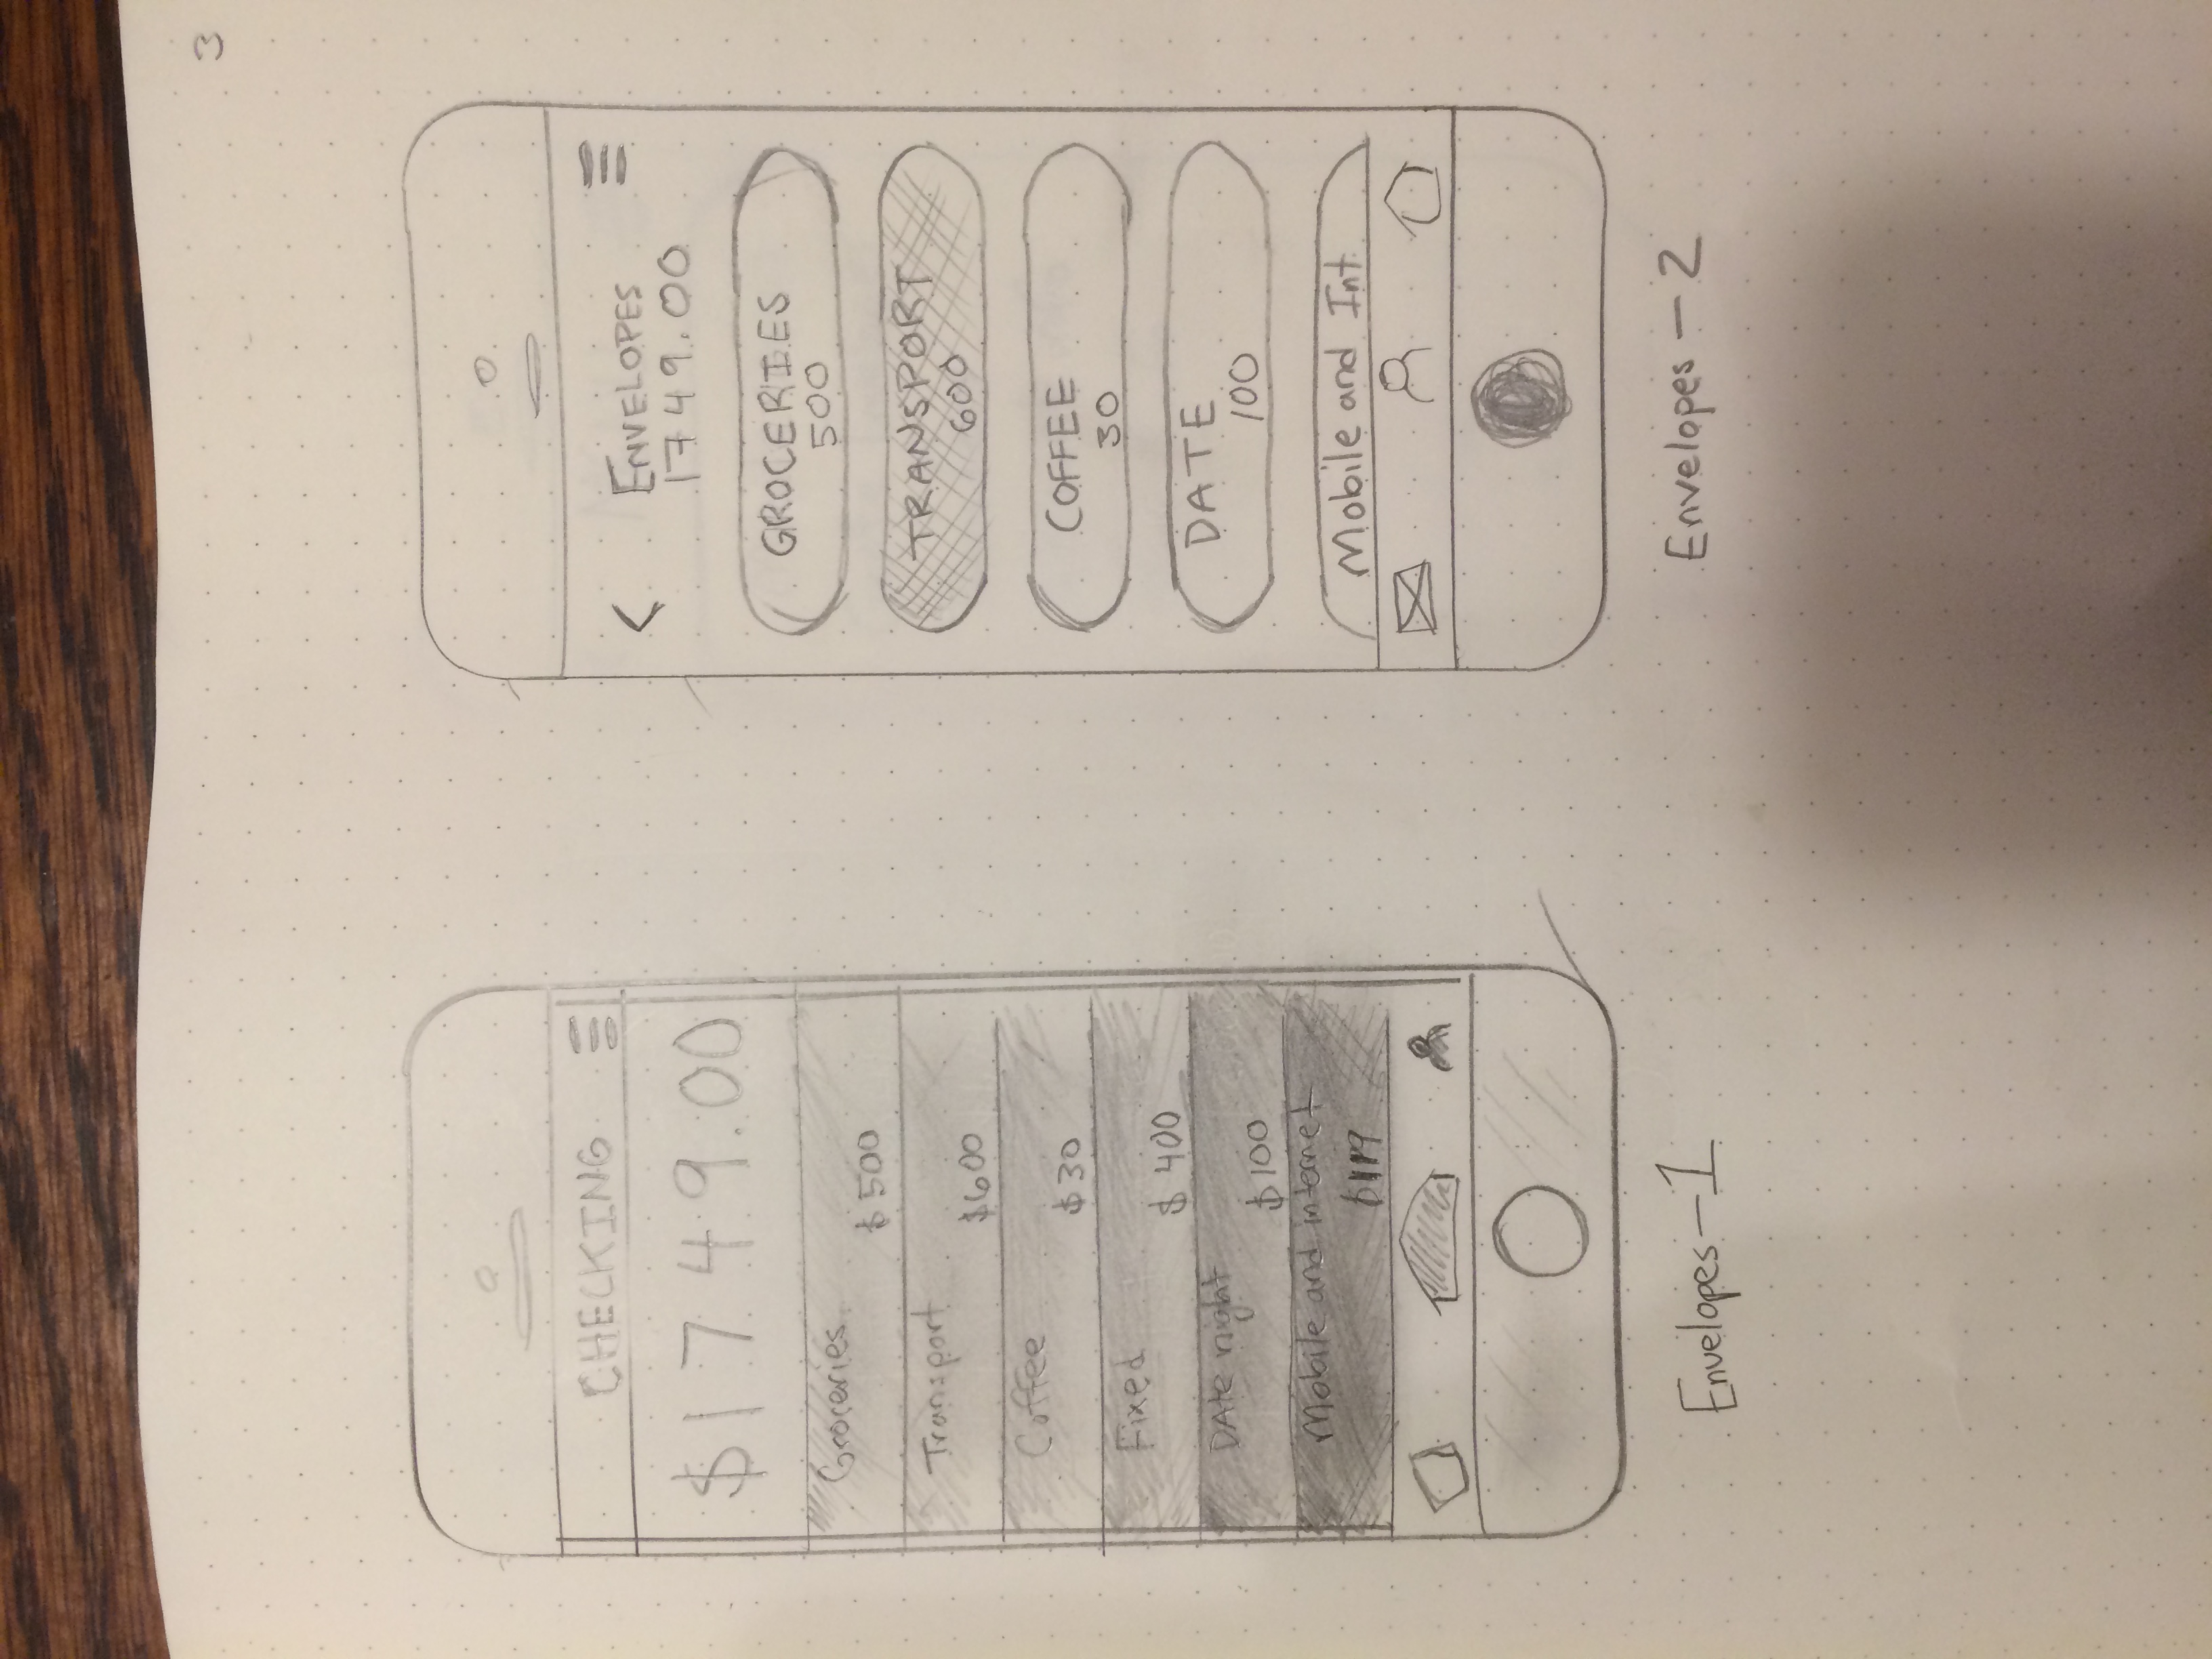 3
CHECKING
$1749.00
Groceries
$500
Transport
$600
Coffee
$30
Fixed
$400
DAte night
$100
Mobile and internet
$119
Envelopes-1
<
ENVELOPES
1749.00
GROCERIES
500
TRANSPORT
600
COFFEE
30
DATE
100
Mobile and Int
Envelopes - 2